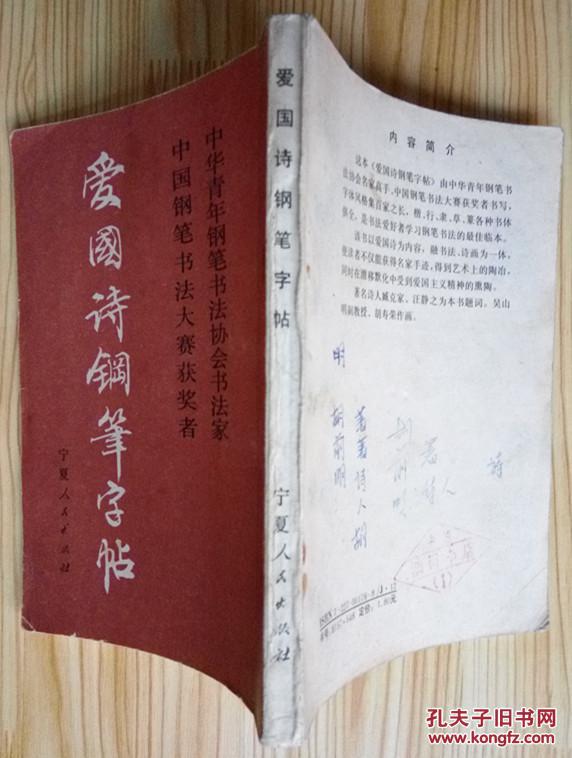 中华青年钢笔书法协会书法家
中国钢笔书法大赛获奖者
爱國诗鋼筆字帖
宁夏人民出版社
爱国诗钢笔字帖
宁夏人民出版社
内容简介
这本《爱国诗钢笔字帖》由中华青年钢笔书
法协会名家高手、中国钢笔书法大赛获奖者书写，
字体风格集百家之长，楷、行、隶、草、篆各种书体
俱全，是书法爱好者学习钢笔书法的最佳临本。
该书以爱国诗为内容，融书法、诗画为一体，
使读者不仅能获得名家手迹，得到艺术上的陶冶，
同时在潜移默化中受到爱国主义精神的熏陶。
著名诗人臧克家、汪静之为本书题词。吴山
明副教授、胡寿荣作画。
明
胡前明
著著诗人胡
诗
定价：1.80元
孔夫子旧书网
www.kongfz.com